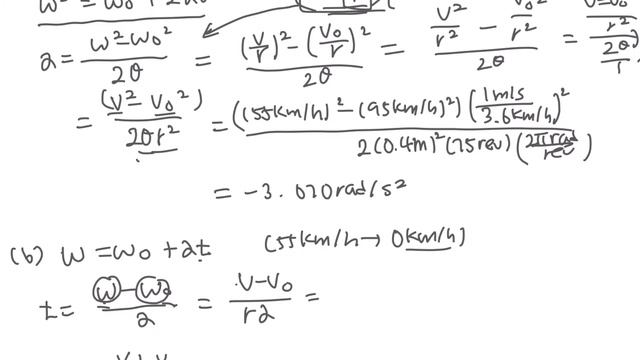 ω² = ω₀² + 2αθ
α = ω² − ω₀² / 2θ = (v/r)² − (v₀/r)² / 2θ = v²/r² − v₀²/r² / 2θ =
= (v² − v₀²) / 2θr² = ((55km/h)² − (95km/h)²) (1m/s / 3.6km/h)² / 2(0.4m)²(75rev)(2πrad/rev)
= −3.070rad/s²
(b) ω = ω₀ + αt (55km/h → 0km/h)
t = ω − ω₀ / α = v − v₀ / rα =